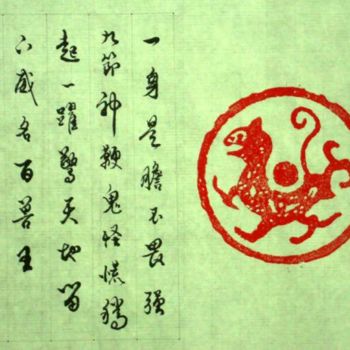 一身是膽不畏强
九節神鞭鬼怪慌騰
起一躍驚天地留
下威名百獸王